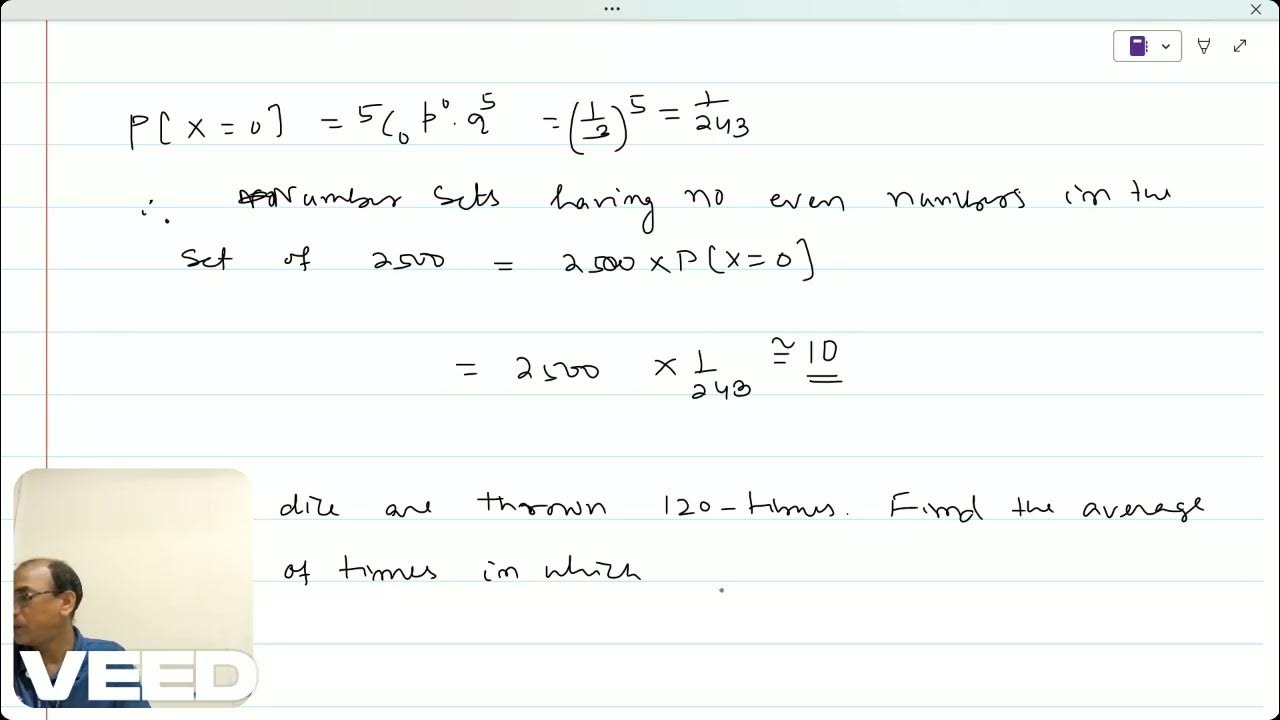 P[X=0] = 5C₀ p⁰.q⁵ = (1/3)⁵ = 1/243
∴ Number sets having no even numbers in the
set of 2500 = 2500 × P[X=0]
= 2500 × 1/243 ≅ 10
dice are thrown 120-times. Find the average
of times in which
VEED